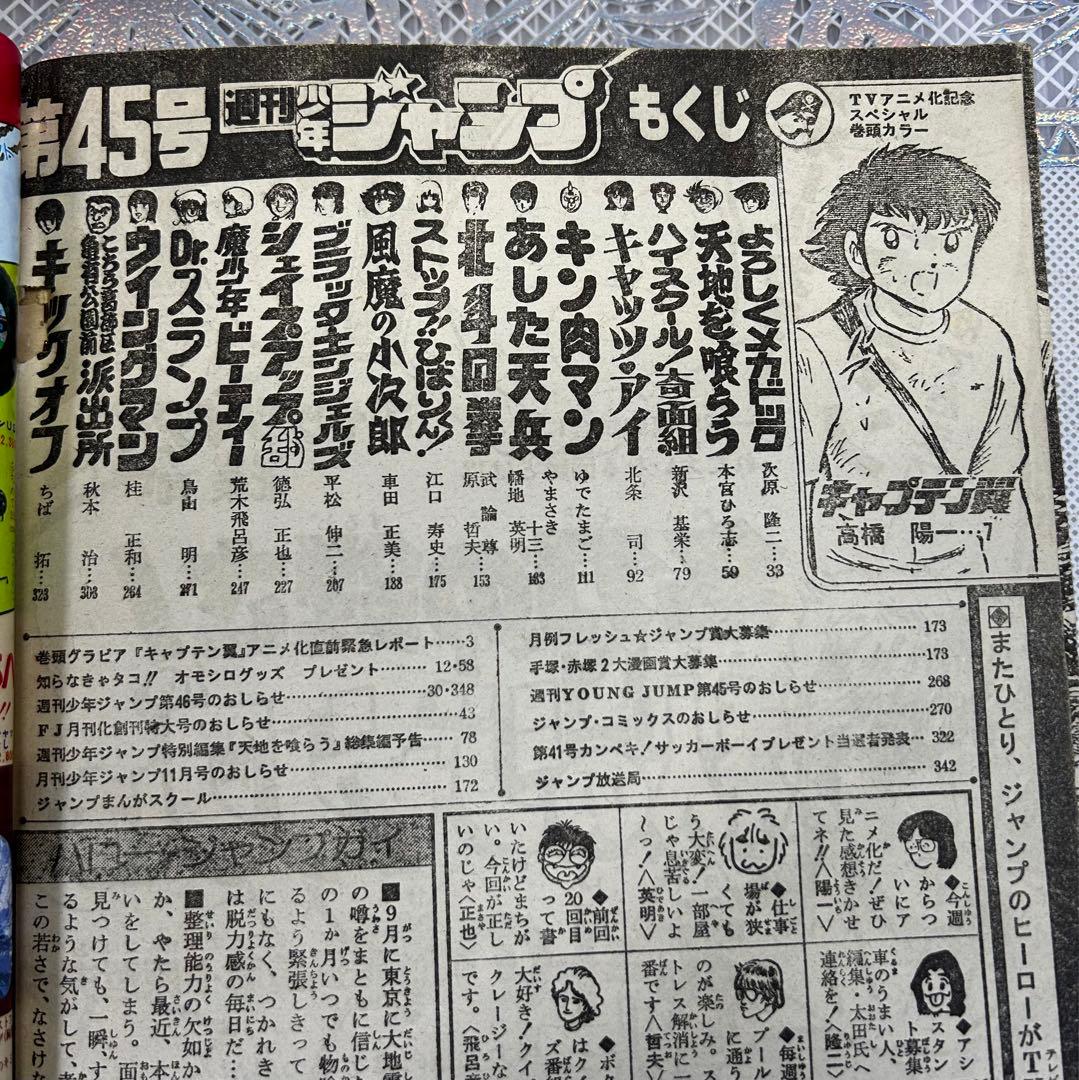 第45号 週刊少年ジャンプ もくじ
TVアニメ化記念
スペシャル
巻頭カラー
キャプテン翼
高橋 陽一…7
よろしくメカドック 次原 隆二…33
天地を喰らう 本宮ひろ志…59
ハイスクール!奇面組 新沢 基栄…79
キャッツ・アイ 北条 司…92
キン肉マン ゆでたまご…111
あした天兵 やまさき十三 幡地 英明…133
北斗の拳 武論尊 原 哲夫…153
ストップ!!ひばりくん! 江口 寿史…175
風魔の小次郎 車田 正美…188
ブラックエンジェルズ 平松 伸二…207
シェイプアップ乱 徳弘 正也…227
魔少年ビーティー 荒木飛呂彦…247
Dr.スランプ 鳥山 明…271
ウイングマン 桂 正和…284
こちら葛飾区亀有公園前派出所 秋本 治…303
キックオフ ちば 拓…323
巻頭グラビア『キャプテン翼』アニメ化直前緊急レポート……3
知らなきゃタコ!! オモシログッズ プレゼント……12・58
週刊少年ジャンプ第46号のおしらせ……30・348
FJ月刊化創刊特大号のおしらせ……43
週刊少年ジャンプ特別編集『天地を喰らう』総集編予告……78
月刊少年ジャンプ11月号のおしらせ……130
ジャンプまんがスクール……172
月例フレッシュ☆ジャンプ賞大募集……173
手塚・赤塚2大漫画賞大募集……173
週刊YOUNG JUMP第45号のおしらせ……268
ジャンプ・コミックスのおしらせ……270
第41号カンペキ!サッカーボーイプレゼント当選者発表…322
ジャンプ放送局……342
またひとり、ジャンプのヒーローがT
◆今週
からつ
いにア
ニメ化だ!ぜひ
見た感想きかせ
てネ!!〈陽一〉
◆仕事
場が狭
くても
う大変!一部屋
じゃ息苦しいよ
〜っ!〈英明〉
◆前回
20回目
って書
いたけどまちが
い。今回が正し
いのじゃ〈正也〉
◆アシ
スタン
ト募集
車のうまい人、
編集・太田氏へ
連絡を!〈隆二〉
◆毎週
プール
に通う
のが楽しみ。ス
トレス解消に一
番です〈哲夫〉
◆ボク
はクイ
ズ番組
大好き!クイ
クレージーな
です。〈飛呂彦
ハロー・ジャンプガイ
■9月に東京に大地震
の噂をまともに信じ
の1か月いつでも物
るよう緊張しきって
にもなく、つかれき
は脱力感の毎日だ…
■整理能力の欠如か
か、やたら最近、本
いをしてしまう。面
見つけても、一瞬、す
るような気がして、考
この若さで、なさけ